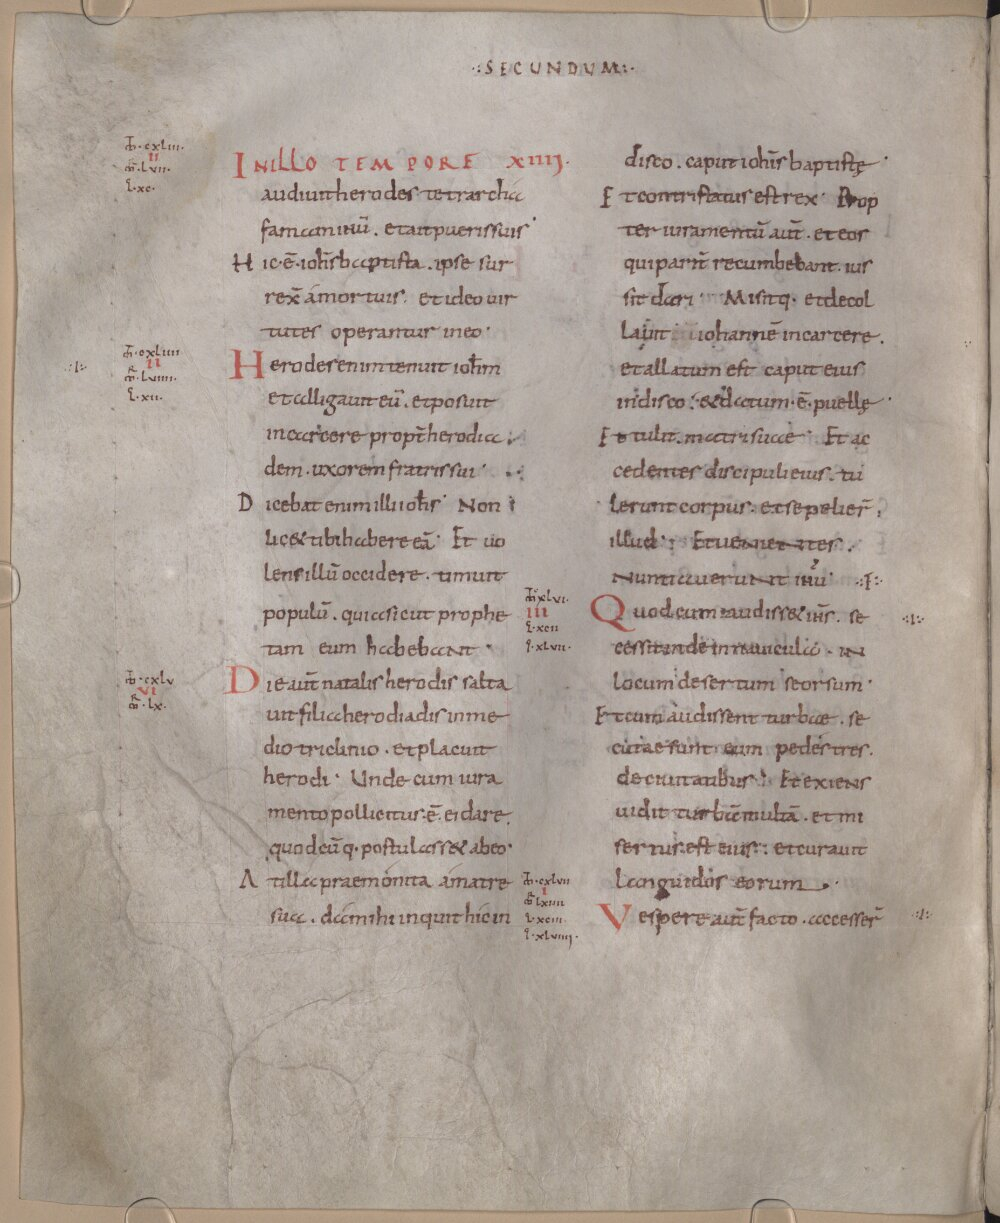 ·:SECUNDUM:·
M̄·cxliii·
II
m̄r·lvii·
l·xc·
IN ILLO TEMPORE XIIII.
audiuit herodes tetrarcha
famam ihū . et ait pueris suis
Hic·ē·iohīs baptista . ipse sur
rex̄ a mortuis . et ideo uir
tutes operantur in eo·
M̄·cxliiii
II
m̄r·lviiii·
l·xii·
Herodes enim tenuit ioh̄m
et alligauit eū . et posuit
in carcere propt̄ herodia
dem . uxorem fratris sui·
Dicebat enim illi ioh̄s· Non
lic& tibi habere eā· Et uo
lens illū occidere . timuit
populū . quia sicut prophe
tam eum habebant·
M̄·cxlv
VI
m̄r·lx·
Die aut̄ natalis herodis salta
uit filia herodiadis in me
dio triclinio . et placuit
herodi· Unde cum iura
mento pollicitus·ē· ei dare
quodcūq· postulass& ab eo·
Atilla praemonita a matre
sua . da mihi inquit hic in
disco . caput ioh̄is baptistę·
Et contristatus est rex· Prop
ter iuramentū aut̄ . et eos
qui parit̄ recumbebant . ius
sit dari· Misitq· et decol
lauit iohannē in carcere .
et allatum est caput eius
in disco . & datum·ē·puellę·
Et tulit matri suae· Et ac
cedentes discipuli eius . tu
lerunt corpus . et sepelier̄
illud· Et uenientes .
nuntiauerunt ihū
M̄·xlvi·
III
l·xcii
l·xlvii·
Quod cum audiss& ihs̄ . se
cessit inde in nauicula . in
locum desertum seorsum·
Et cum audissent turbae . se
cutae sunt eum pedestres .
de ciuitatibus· Et exiens
uidit turbā multā . et mi
sertus est eius : et curauit
languidos eorum·
M̄·cxlvii
I
m̄r·lxiiii
l·xciii·
l·xlviiii·
Vespere aut̄ facto . accesser̄